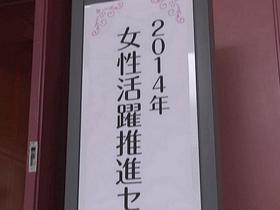 2014年
女性活躍推進セ